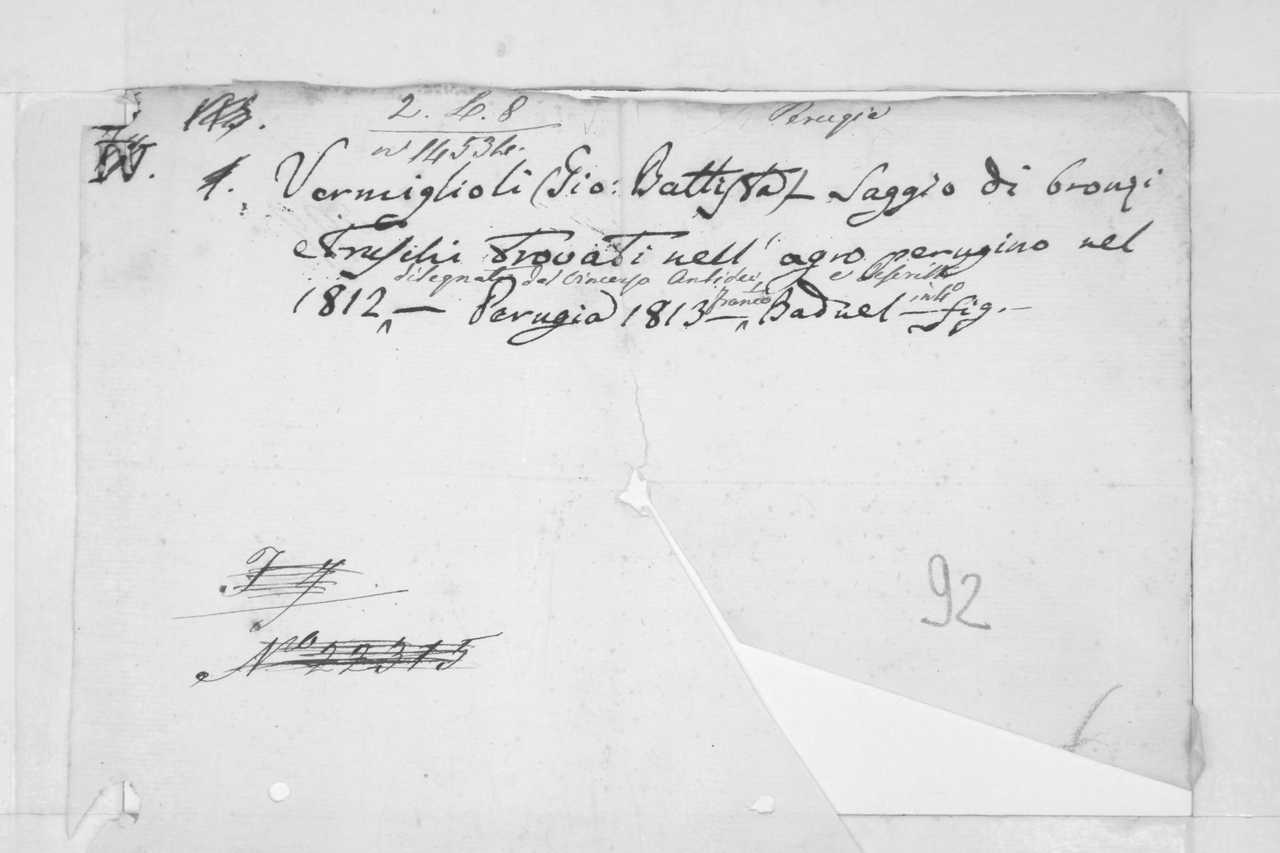 2. 4. 8
Perugia
n° 14534.
1. Vermiglioli (Gio: Battista) Saggio di bronzi
etruschi trovati nell' agro perugino nel
disegnati da Vincenzo Ansidei, e descritti
1812 — Perugia 1813 — Franco Baduel — in 4° fig. —
N.ro 22315
92